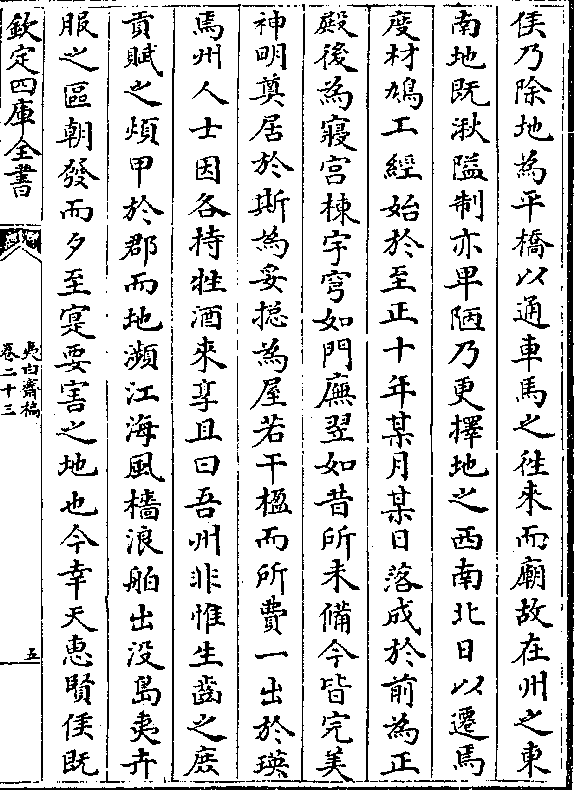 侯乃除地為平橋以通車馬之徃來而廟故在州之東
南地既湫隘制亦卑陋乃更擇地之西南北日以遷焉
度材鳩工經始於至正十年某月某日落成於前為正
殿後為寢宫棟宇穹如門廡翌如昔所未備今皆完美
神明奠居於斯為妥摠為屋若干楹而所費一出於瑛
焉州人士因各持牲酒來享且曰吾州非惟生齒之庶
貢賦之煩甲於郡而地瀕江海風檣浪舶出没島夷卉
服之區朝發而夕至寔要害之地也今幸天惠賢侯既
欽定四庫全書
夷白齋稿
卷二十三
五